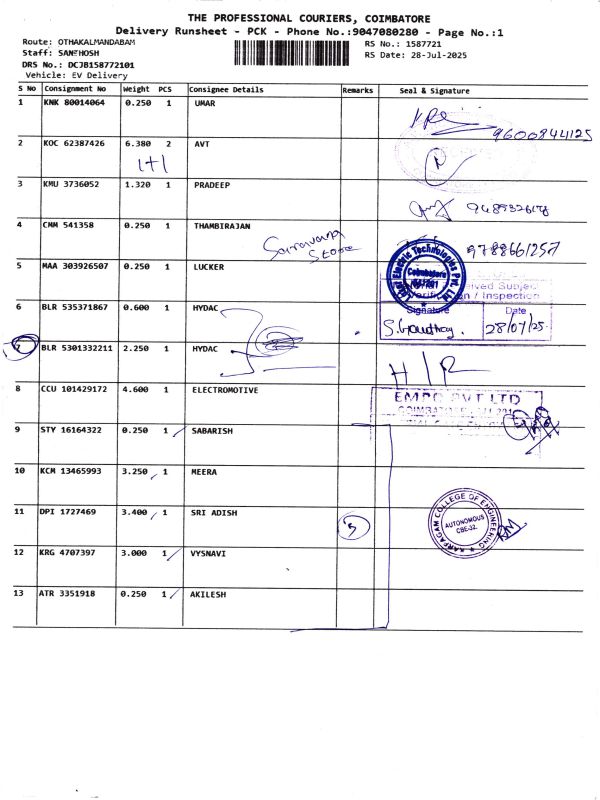 THE PROFESSIONAL COURIERS, COIMBATORE
Delivery Runsheet - PCK - Phone No.:9047080280 - Page No.:1
Route: OTHAKALMANDABAM
Staff: SANTHOSH
DRS No.: DCJB158772101
Vehicle: EV Delivery
RS No.: 1587721
RS Date: 28-Jul-2025
S No Consignment No Weight PCS Consignee Details Remarks Seal & Signature
1 KNK 80014064 0.250 1 UMAR
9600844125
2 KOC 62387426 6.380 2 AVT
1+1
3 KMU 3736052 1.320 1 PRADEEP
4 CMM 541358 0.250 1 THAMBIRAJAN
Saravana Store
9788661257
5 MAA 303926507 0.250 1 LUCKER
Electric Technologies Pvt. Ltd
Coimbatore
Received Subject
/ Inspection
Signature Date
28/07/25.
6 BLR 535371867 0.600 1 HYDAC
7 BLR 5301332211 2.250 1 HYDAC
H/R
8 CCU 101429172 4.600 1 ELECTROMOTIVE
PVT LTD
9 STY 16164322 0.250 1 SABARISH
10 KCM 13465993 3.250 1 MEERA
11 DPI 1727469 3.400 1 SRI ADISH
5
KARPAGAM COLLEGE OF ENGINEERING
AUTONOMOUS
CBE-32.
12 KRG 4707397 3.000 1 VYSNAVI
13 ATR 3351918 0.250 1 AKILESH